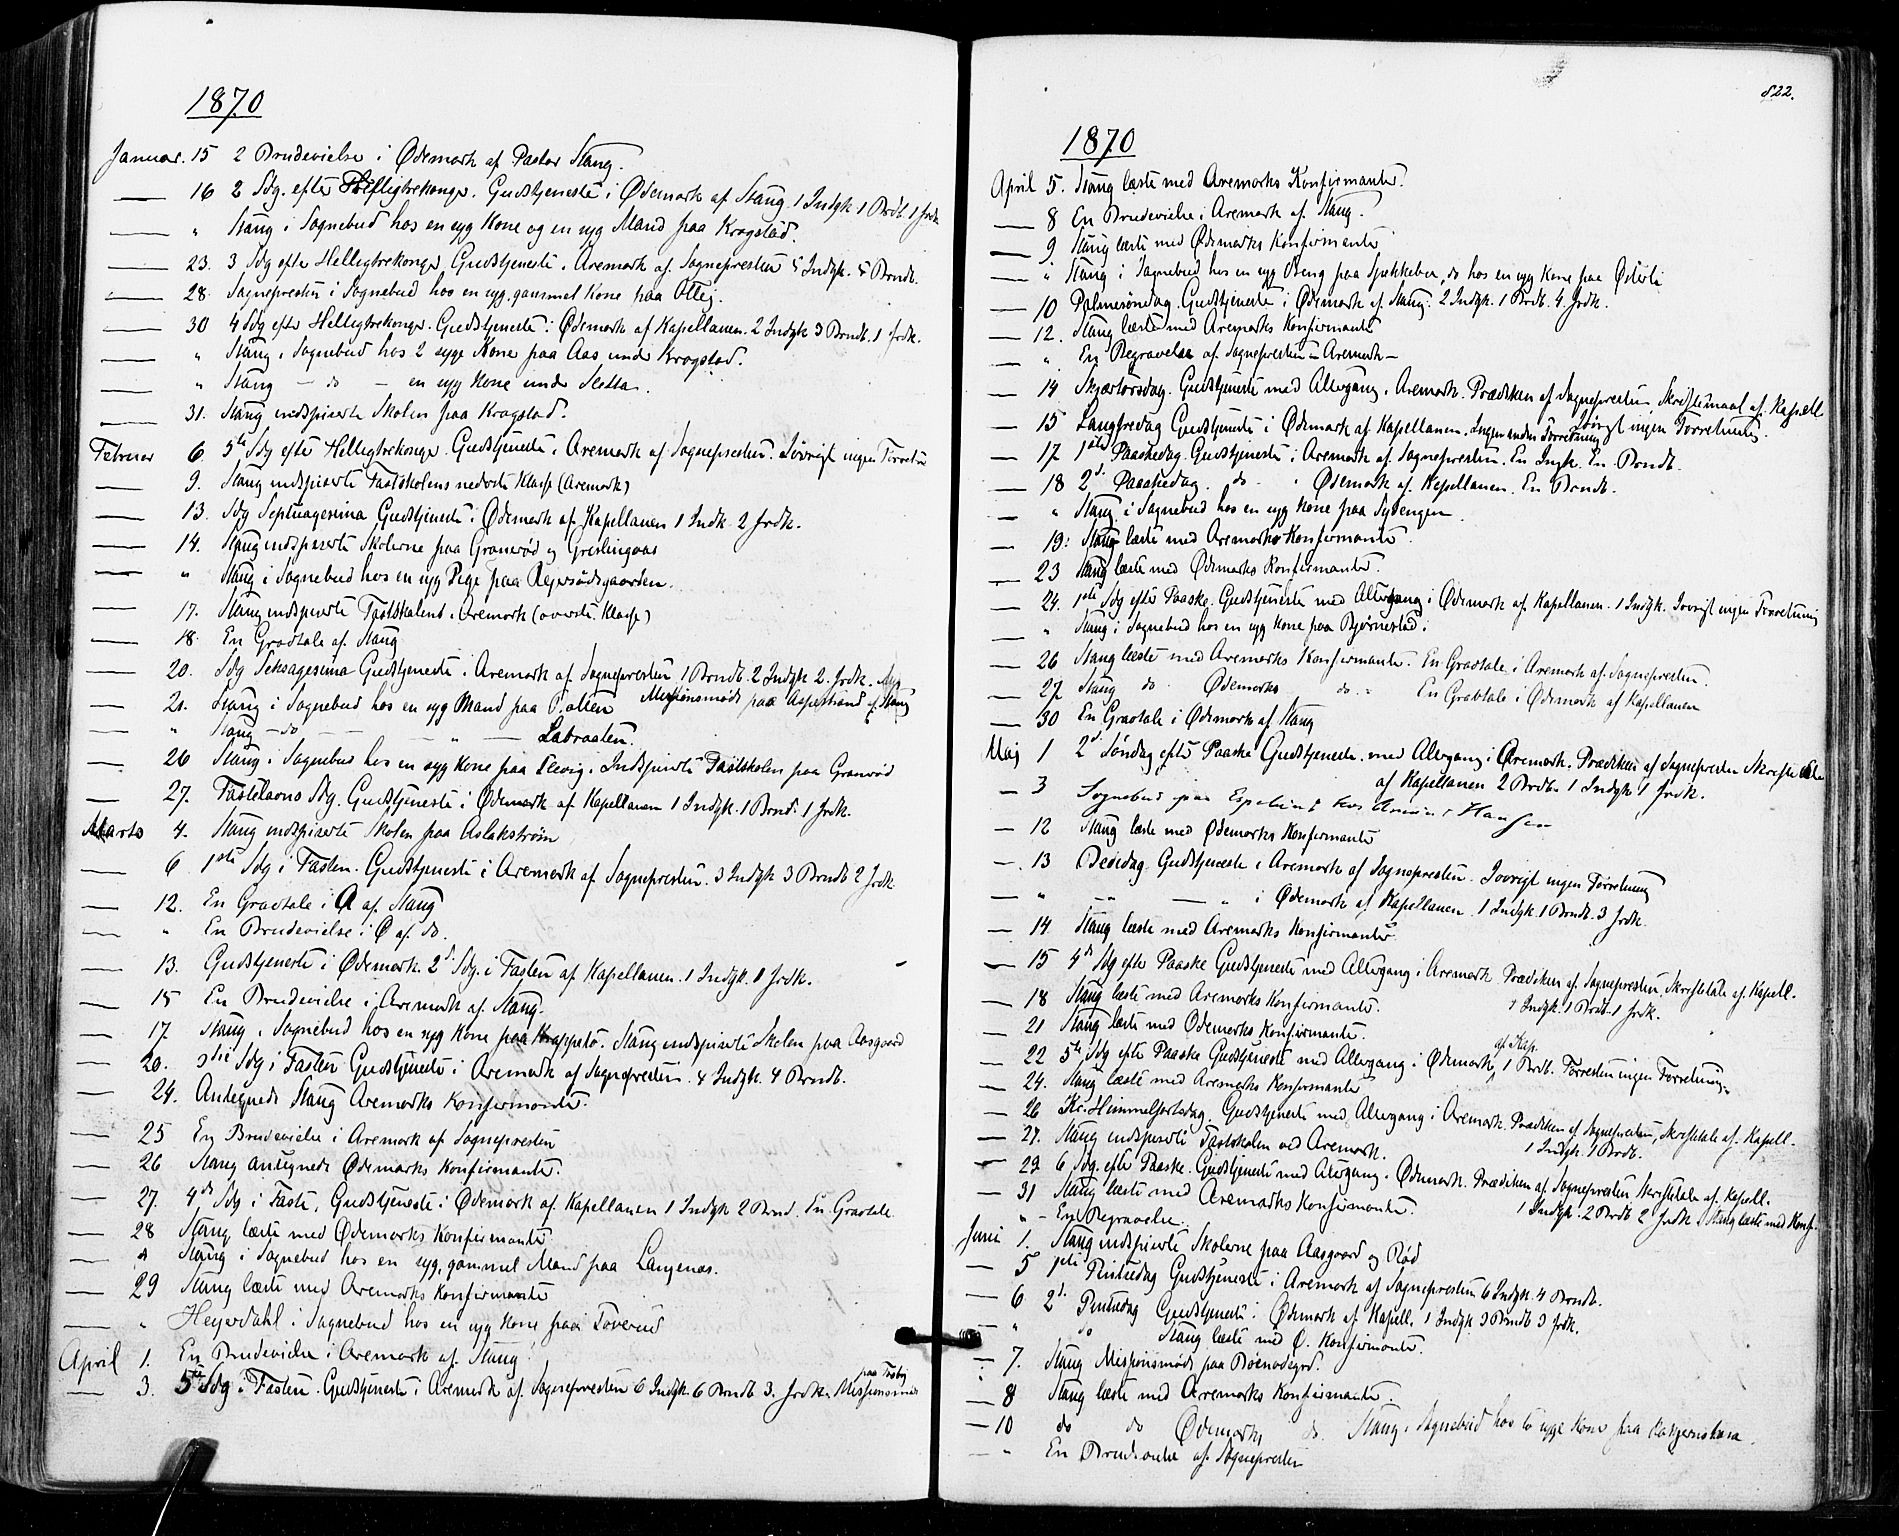 1870
Januar. 15 2 Brudevielse i Ødemark af Pastor Stang.
— 16 2 Sdg. efter Helligtrekonger. Gudstjeneste i Ødemark af Stang. 1 Indgk 1 Brdb. 1 Jrdk
— " Stang i Sognebud hos en syg Kone og en syg Mand paa Kragstad.
— 23. 3 Sdg efter Helligtrekonger Gudstjeneste i Aremark af Sognepresten 5 Indgk. 5 Brndb.
— 28. Sognepresten i Sognebud hos en syg, gammel Kone paa
— 30 4 Sdg efter Helligtrekonger. Gudstjeneste i Ødemark af Kapellanen. 2 Indgk 3 Brndb. 1 Jrdk.
— " Stang i Sognebud hos 2 syge Kone paa Aas under Kragstad.
— " Stang — do — en syg Kone under Sletta.
— 31. Stang indspiserte Skolen paa Kragstad.
Februar 6. 5te Sdg efter Helligtrekonger. Gudstjeneste i Aremark af Sognepresten. Iøvrigt ingen Forretn
— 9. Stang indspiserte Fastskolens nederste Klasse (Aremark)
— 13. Sdg Septuagesima Gudstjeneste i Ødemark af Kapellanen 1 Indk. 2 Jrdk.
— 14. Stang indspiserte Skolerne paa Graneröd og Greslingaas
— " Stang i Sognebud hos en syg Pige paa
— 17. Stang indspiserte Fastskolens i Aremark (øverste Klasse)
— 18. En Gravtale af Stang
— 20. Sdg Seksagesima Gudstjeneste i Aremark af Sognepresten 1 Brndb. 2 Indgk 2. Jrdk.
— 21. Stang i Sognebud hos en syg Mand paa Missionsmøde paa Aspestrand af Stang
— " Stang — do — " — Labraaten.
— 26 Stang i Sognebud hos en syg Kone paa Indspiserte Fastskolen paa Graneröd
— 27. Fastelavns Sdg. Gudstjeneste i Ødemark af Kapellanen 1 Indgk. 1 Brnd. 1 Jrdk.
Marts 4. Stang indspiserte Skolen paa Aslakstrøm
— 6 1ste Sdg i Fasten. Gudstjeneste i Aremark af Sognepresten. 3 Indgk 3 Brndb 2 Jrdk.
— 12. En Gravtale i A af. Stang
— " En Brudevielse i Ø af do.
— 13. Gudstjeneste i Ødemark. 2d. Sdg. i Fasten af Kapellanen. 1 Indgk. 1 Jrdk.
— 15 En Brudevielse i Aremark af. Stang.
— 17. Stang i Sognebud hos en syg Kone paa Krappetø. Stang indspiserte Skolen paa Aasgaard
— 20. 3die Sdg i Fasten Gudstjeneste i Aremark af Sognepresten. 4 Indgk. 4 Brndb.
— 24. Antegnede Stang Aremarks Konfirmanter.
— 25 En Brudevielse i Aremark af Sognepresten
— 26 Stang antegnede Ødemarks Konfirmanter.
— 27. 4de Sdg i Faste. Gudstjeneste i Ødemark af. Kapellanen 1 Indgk 2 Brnd. En Gravtale.
— 28 Stang læste med Ødemarks Konfirmanter
— " Stang i Sognebud hos en syg, gammel Mand paa Langenæs.
— 29 Stang læste med Aremarks Konfirmanter
— " Heyerdahl i Sognebud hos en syg Kone paa Töverud
April 1. En Brudevielse i Aremark af. Stang
paa Fosby
— 3. 5te Sdg i Fasten. Gudstjeneste i Aremark af. Sognepresten 6 Indgk. 6 Brndb 3. Jrdk. Missionsmøde
822.
1870
April 5. Stang læste med Aremarks Konfirmanter.
— 8 En Brudevielse i Aremark af. Stang.
— 9 Stang læste med Ødemarks Konfirmanter
— " Stang i Sognebud hos en syg paa do hos en syg Kone paa
— 10 Palmesøndag. Gudstjeneste i Ødemark af. Stang. 2 Indgk. 1 Brdb. 4. Jrdk.
— 12. Stang læste med Aremarks Konfirmanter
— " En Begravelse af. Sognepresten i Aremark —
— 14 Skjærtorsdag. Gudstjeneste med Altergang i Aremark. Prædiken af Sognepresten Skriftemaal af. Kapell
Iøvrigt ingen Forretning.
— 15 Langfredag Gudstjeneste i Ødemark af Kapellanen. Ingen anden Forretning
— 17 1ste Paaskedag. Gudstjeneste i Aremark af. Sognepresten. En Ingk. En Brndb.
— 18 2d. Paaskedag. do. i Ødemark af. Kapellanen. En Brndb.
— " Stang i Sognebud hos en syg Kone paa
— 19: Stang læste med Aremarks Konfirmanter.
— 23 Stang læste med Ødemarks Konfirmanter.
— 24. 1ste Sdg efter Paaske. Gudstjeneste med Altergang i Ødemark af. Kapellanen. 1 Indgk. Iøvrigt ingen Forretning
— " Stang i Sognebud hos en syg Kone paa Bjørnestad.
— 26 Stang læste med Aremarks Konfirmanter. En Gravtale i Aremark af. Sognepresten.
— 27 Stang do. Ødemarks do. En Gravtale i Ødemark af Kapellanen
— 30 En Gravtale i Ødemark af Stang
Maj 1 2d. Søndag efter Paaske Gudstjeneste med Altergang i Aremark. Prædiken af Sognepresten
af Kapellanen 2 Brdb. 1 Indgk 1 Jrdk.
— 3 Sognebud paa hos Hansen
— 12 Stang læste med Ødemarks Konfirmanter
— 13 Bededag. Gudstjeneste i Aremark af Sognepresten. Iøvrigt ingen Forretning
— " — " — " i Ødemark af. Kapellanen. 1 Indgk. 1 Brndb. 3 Jrdk.
— 14 Stang læste med Aremarks Konfirmanter
— 15 4de Sdg efter Paaske Gudstjeneste med Altergang i Aremark Prædiken af. Sognepresten. Skriftetale af. Kapell.
1 Indgk. 1 Brdb. 1 Jrdk.
— 18 Stang læste med Aremarks Konfirmanter.
— 21 Stang læste med Ødemarks Konfirmanter.
af Kap.
— 22 5te Sdg efter Paaske Gudstjeneste med Altergang i Ødemark, 1 Brdb. Forresten ingen Forretning.
— 24. Stang læste med Aremarks Konfirmanter
— 26 Kr. Himmelfartsdag. Gudstjeneste med Altergang i Aremark. Prædiken af Sognepresten, Skriftetale af. Kapell.
1 Indgk. 1 Brdb.
— 27. Stang indspiserte Fastskolen ved Aremark.
— 29 6 Sdg. efter Paaske. Gudstjeneste med Altergang i Ødemark. Prædiken af Sognepresten Skriftetale af. Kapell.
1 Indgk. 2 Brdb 2 Jrdk. Stang læste med Konf.
— 31 Stang læste med Aremarks Konfirmanter.
" — En Begravelse.
Juni 1. Stang indspiserte Skolerne paa Aasgaard og Röd
— 5 1ste Pintsedag Gudstjeneste i Aremark af Sognepresten 6 Indgk. 4 Brndb.
— 6 2d. Pintsedag Gudstjeneste i Ødemark af Kapell. 1 Indgk 3 Brndb 3 Jrdk.
— " do Stang læste med Ø. Konfirmanter.
— 7. Stang Missionsmøde paa
— 8 Stang læste med Aremarks Konfirmanter.
— 10 do do Ødemarks do. Stang i Sognebud hos to syge Kone paa
— " En Brudevielse af. Sognepresten